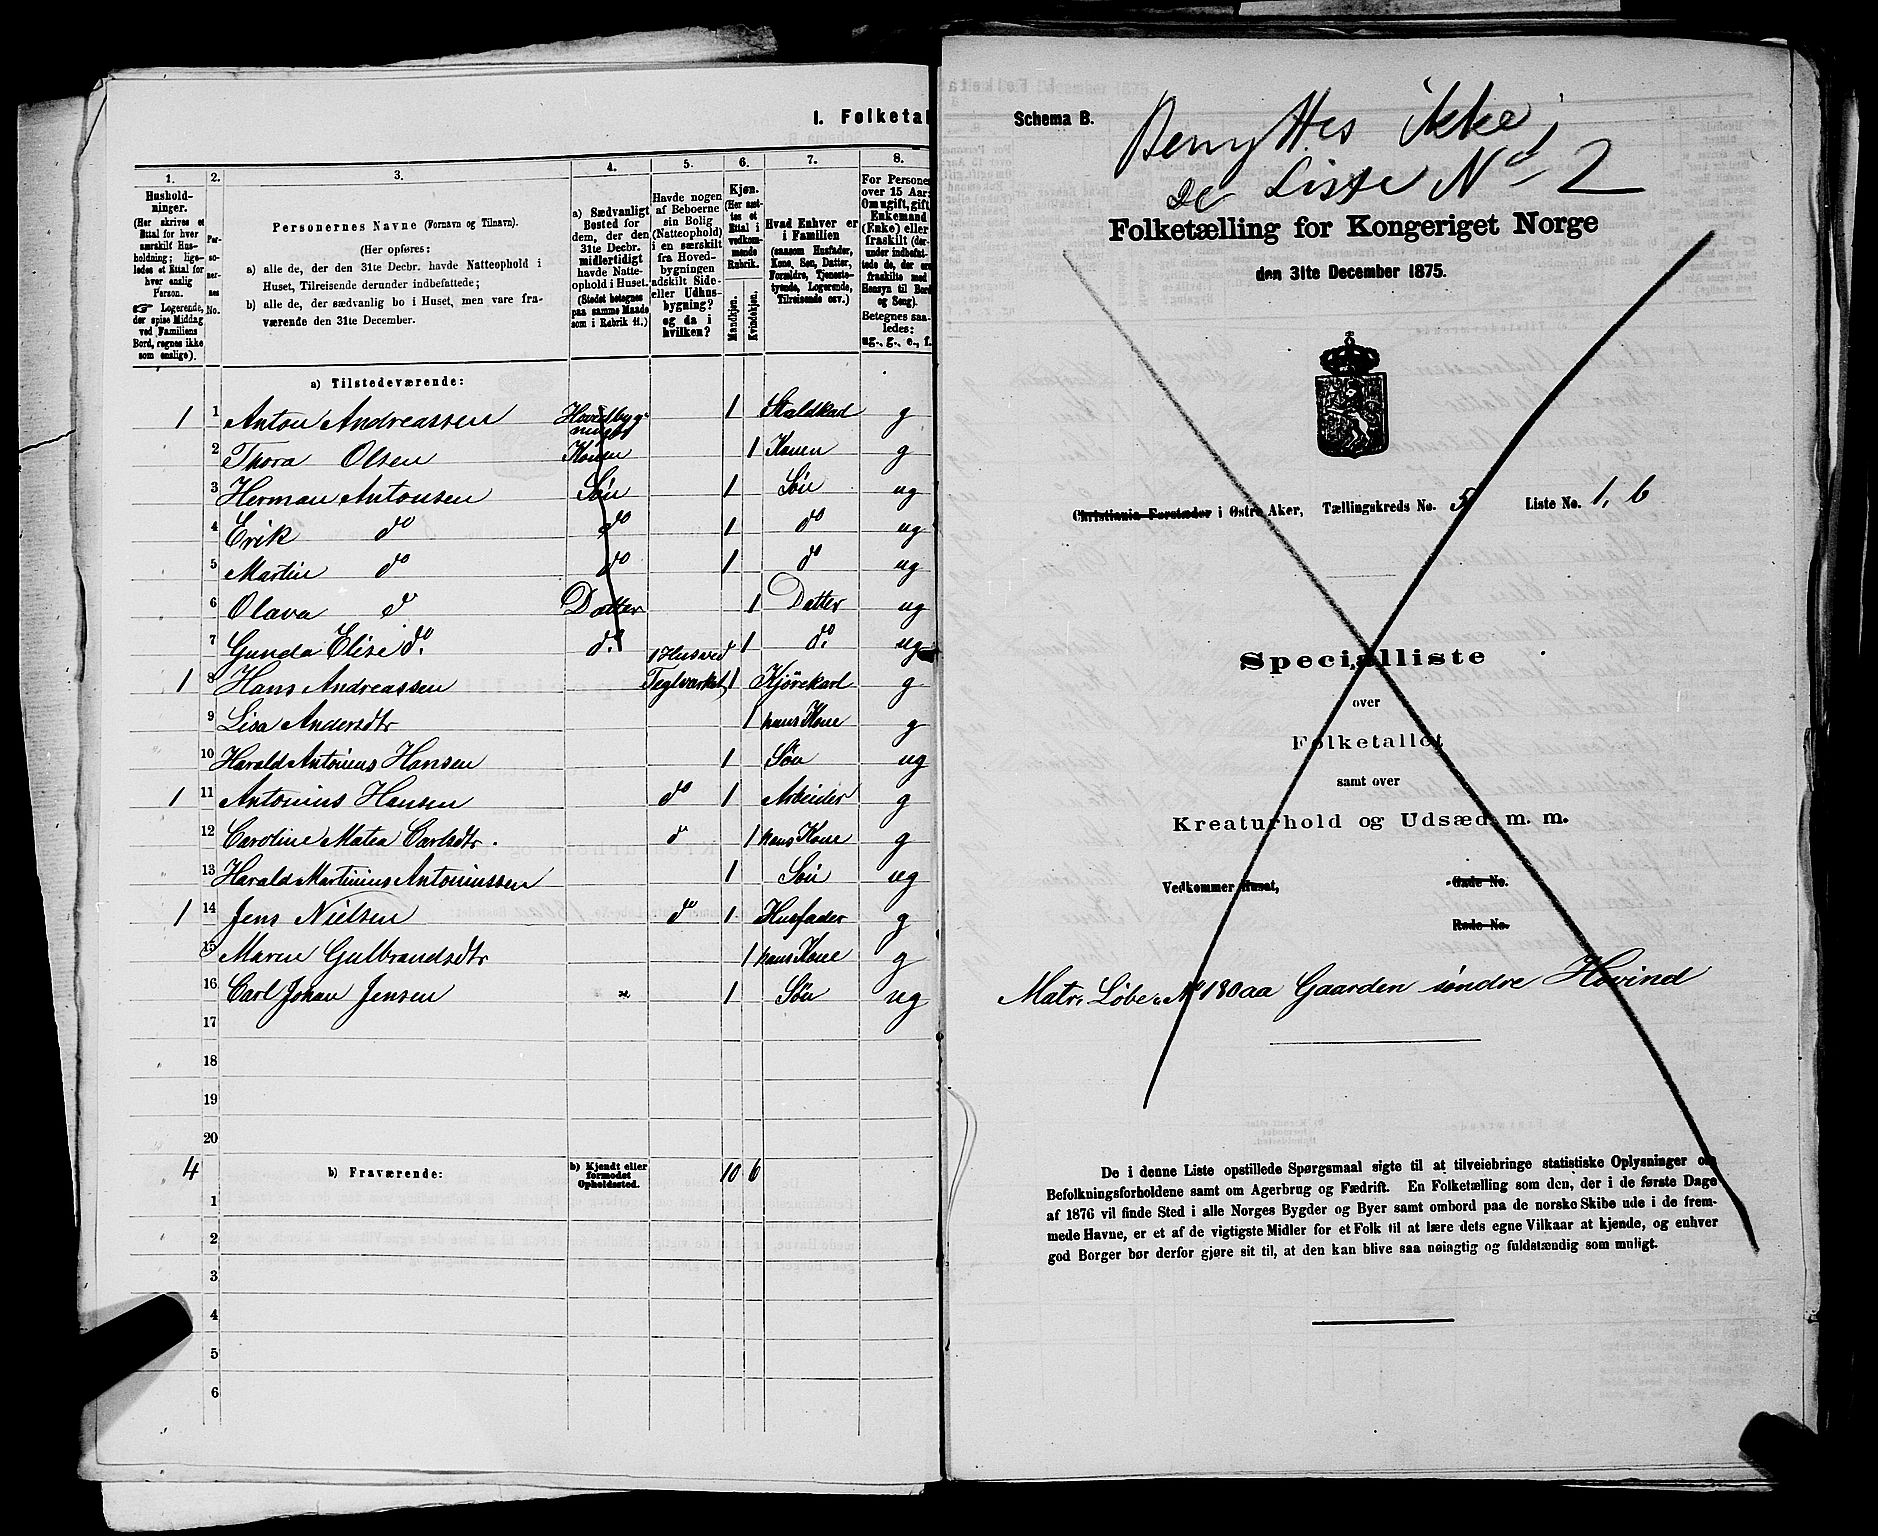 I. Folketal
1. 2. 3. 4. 5. 6. 7. 8.
Hushold-
ninger.
(Her skrives et
Ettal for hver
særskilt Hus-
holdning; lige-
ledes et Ettal for
hver enslig
Person.
☞ Logerende,
der spise Middag
ved Familiens
Bord, regnes ikke
som enslige).
Per-
so-
ner-
nes
No.
Personernes Navne (Fornavn og Tilnavn).
(Her opføres:
a) alle de, der den 31te Decbr. havde Natteophold i
Huset, Tilreisende derunder indbefattede;
b) alle de, der sædvanlig bo i Huset, men vare fra-
værende den 31te December.
a) Sædvanligt
Bosted for
dem, der den
31te Decbr.
midlertidigt
havde Natte-
ophold i Huset.
(Stedet betegnes
paa samme Maade
som i Rubrik 11.)
Havde nogen
af Beboerne
sin Bolig
(Natteophold)
i en særskilt
fra Hoved-
bygningen
adskilt Side-
eller Udhus-
bygning?
og da i
hvilken?
Kjøn.
(Her sæt-
tes et
Ettal i
vedkom-
mende
Rubrik.
Mandkjøn.
Kvindekjøn.
Hvad Enhver er
i Familien
(saasom Husfader,
Kone, Søn, Datter,
Forældre, Tjeneste-
tyende, Logerende,
Tilreisende osv.)
For Persone
over 15 Aar:
Om ugift, gift,
Enkemand
(Enke) eller
fraskilt (der-
under indbefat-
tede de, der ere
fraskilte med
Hensyn til Bord
og Seng).
Betegnes saa-
ledes:
ug., g., e., f.
a) Tilstedeværende:
1 1 Anton Andreassen Hovedbyg- 1 Staldkad g
ningen
2 Thora Olsen Konen 1 Konen g
3 Herman Antonsen Søn 1 Søn ug
4 Erik do do 1 do ug
5 Martin do do 1 do ug
6 Olava d Datter 1 Datter ug
7 Gunda Elise do. d. 1 do. ug
1 8 Hans Andreassen 1 Hus ved Teglværket 1 Kjørekarl g
9 Lisa Andersdtr 1 hans Kone g
10 Harald Antonius Hansen 1 Søn ug
1 11 Antonius Hansen do 1 Arbeider g
12 Caroline Matea Carlsdtr. d 1 hans Kone g
13 Harald Martinius Antoniussen 1 Søn ug
1 14 Jens Nielsen do 1 Husfader g
15 Maren Gulbrandsdtr 1 hans Kone g
16 Carl Johan Jensen 1 Søn ug
17
18
19
20
4 b) Fraværende: b) Kjendt eller
formodet
Opholdssted. 10 6
1
2
3
4
5
6
Schema B.
Benyttes ikke
se Liste No 2
Folketælling for Kongeriget Norge
den 31te December 1875.
Christiania Forstæder i Østre Aker, Tællingskreds No. 5 Liste No. 1, b
Specialliste
over
Folketallet
samt over
Kreaturhold og Udsæd m. m.
Vedkommer Huset, Gade No.
Rode No.
Matr. Løbe No 180aa Gaarden søndre Hovind
De i denne Liste opstillede Spørgsmaal sigte til at tilveiebringe statistiske Oplysninger om
Befolkningsforholdene samt om Agerbrug og Fædrift. En Folketælling som den, der i de første Dage
af 1876 vil finde Sted i alle Norges Bygder og Byer samt ombord paa de norske Skibe ude i de frem-
mede Havne, er et af de vigtigste Midler for et Folk til at lære dets egne Vilkaar at kjende, og enhver
god Borger bør derfor gjøre sit til, at den kan blive saa nøiagtig og fuldstændig som muligt.